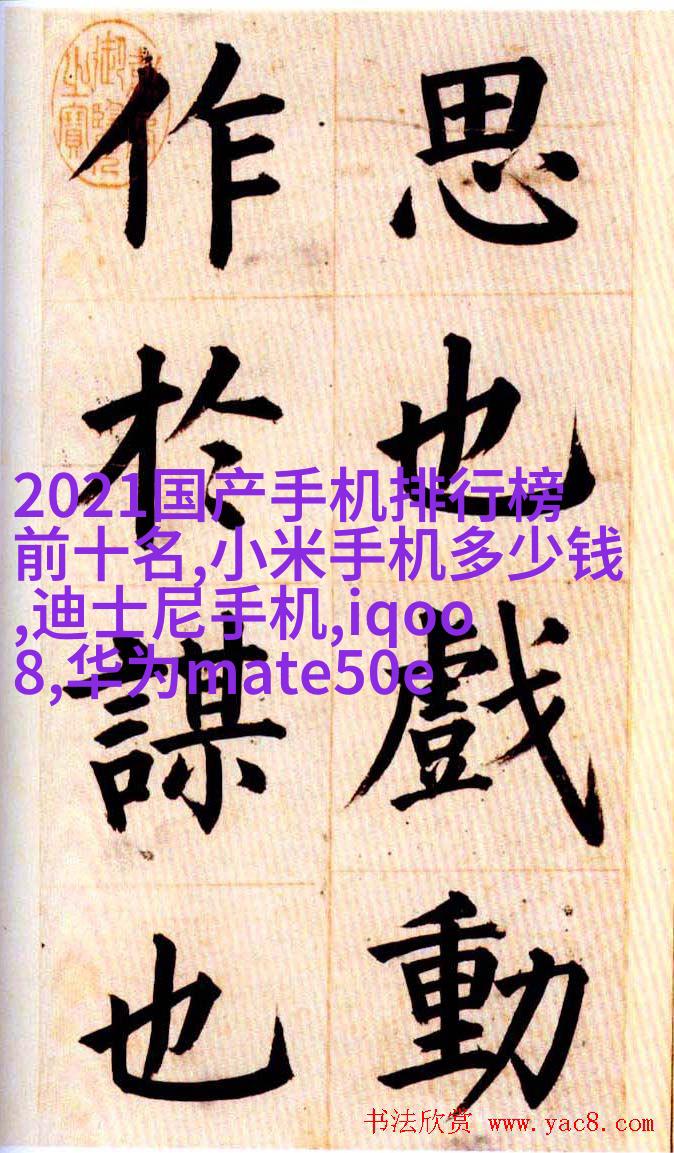 思也戲動
作於謀也
2021国产手机排行榜
前十名,小米手机多少钱
,迪士尼手机,iqoo
8,华为mate50e
书法欣赏 www.yac8.com